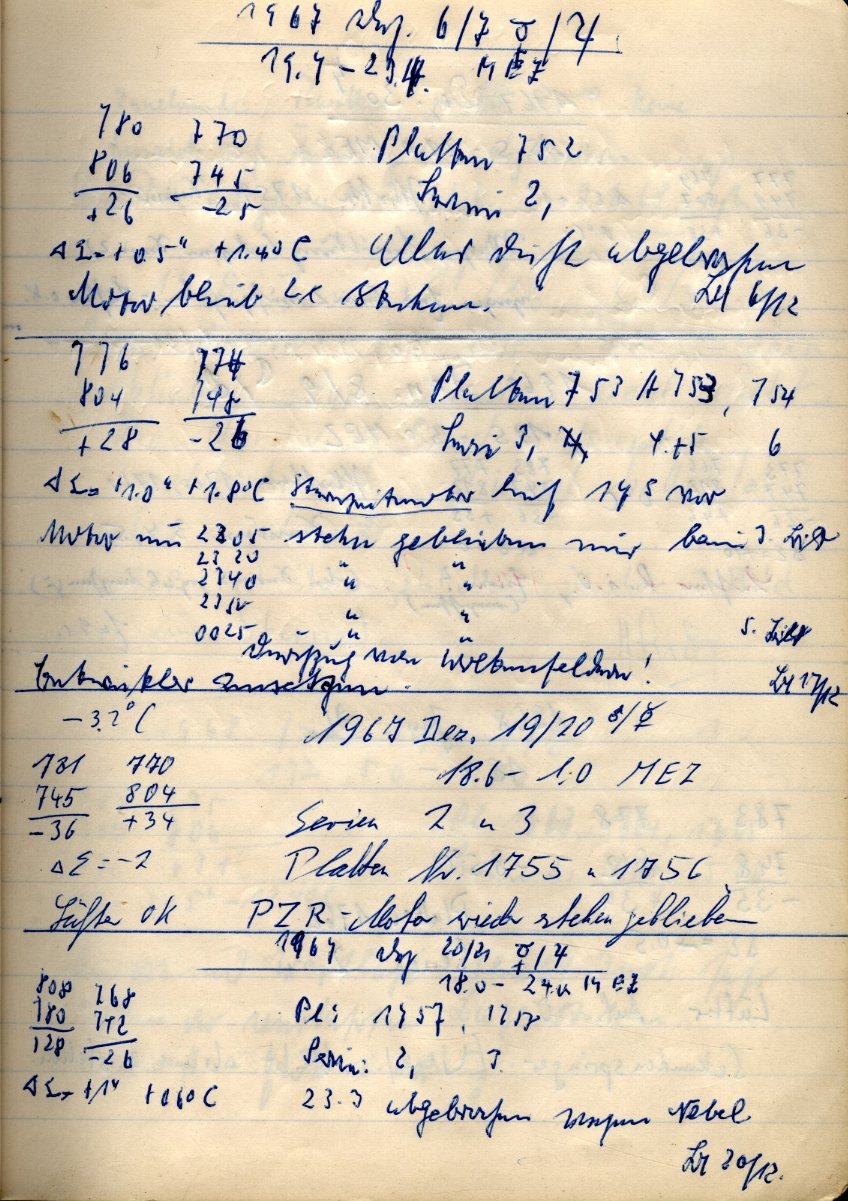 1967 Dez. 6/7 ☿/♃
19.4 – 23.4 MEZ
780 770 Platten 752
806 745 Serie 2,
+26 -25
ΔΣ=+0.5" +1.4°C Wegen Dunst abgebrochen
Motor blieb 2x stehen. 6/12
776 774 Platten 753, 754
804 748 Serie 3, 4+5 6
+28 -26
ΔΣ= +1.0" +1.8°C lief 145 vor
Motor um 2305 stehen geblieben nur beim 3.
2320 " "
2340 " "
2350 " "
0025 " " 5.
Durchzug von Wolkenfeldern!
Entwickler ansetzen. 17/12
-3.2°C 1967 Dez. 19/20 ♂/☿
781 770 18.6 – 1.0 MEZ
745 804 Serien 2 u 3
-36 +34
ΔΣ=-2 Platten Nr. 1755 u 1756
Lüfter OK PZR-Motor wieder stehen geblieben
1967 Dez 20/21 ☿/♃
18.0 – 24.0 MEZ
808 768 Pl: 1757, 1758
780 742 Serie: 2, 3.
128 -26
ΔΣ= +1" +0.6°C 23.3 abgebrochen wegen Nebel
20/12.